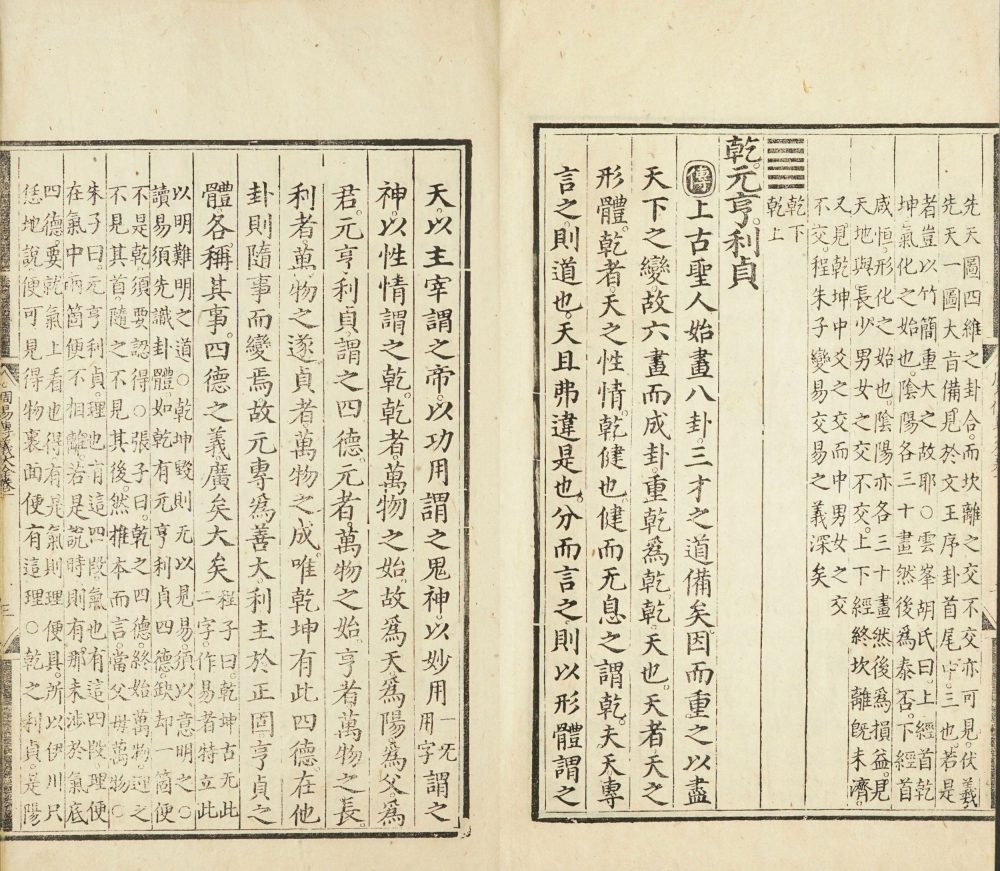 先天圖四維之卦合而坎離之交不交亦可見伏羲
先天一圖大旨備見於文王序卦首尾中三也若是
者豈以竹簡重大之故耶○雲峯胡氏曰上經首乾
坤氣化之始也陰陽各三十畫然後爲泰否下經首
咸恒形化之始也陰陽亦各三十畫然後爲損益見
天地與長少男女之交不交上下經終坎離旣未濟
又見乾坤中爻之交而中男女之交
不交程朱子變易交易之義深矣
乾下
乾上
乾元亨利貞
傳上古聖人始畫八卦三才之道備矣因而重之以盡
天下之變故六畫而成卦重乾爲乾乾天也天者天之
形體乾者天之性情乾健也健而无息之謂乾夫天專
言之則道也天且弗違是也分而言之則以形體謂之
天以主宰謂之帝以功用謂之鬼神以妙用一无用字謂之
神以性情謂之乾乾者萬物之始故爲天爲陽爲父爲
君元亨利貞謂之四德元者萬物之始亨者萬物之長
利者萬物之遂貞者萬物之成唯乾坤有此四德在他
卦則隨事而變焉故元專爲善大利主於正固亨貞之
體各稱其事四德之義廣矣大矣程子曰乾坤古无此二字作易者特立此
以明難明之道○乾坤毀則无以見易須以意明之○
讀易須先識卦體如乾有元亨利貞四德缺却一箇便
不是乾須要認得○張子曰乾之四德終始萬物迎之
不見其首隨之不見其後然推本而言當父母萬物○
朱子曰元亨利貞理也有這四段氣也有這四段理便
在氣中兩箇便不相離若是說時則有那未涉於氣底
四德要就氣上看也得有是氣則理便具所以伊川只
恁地說便可見得物裏面便有這理○乾之利貞是陽
三